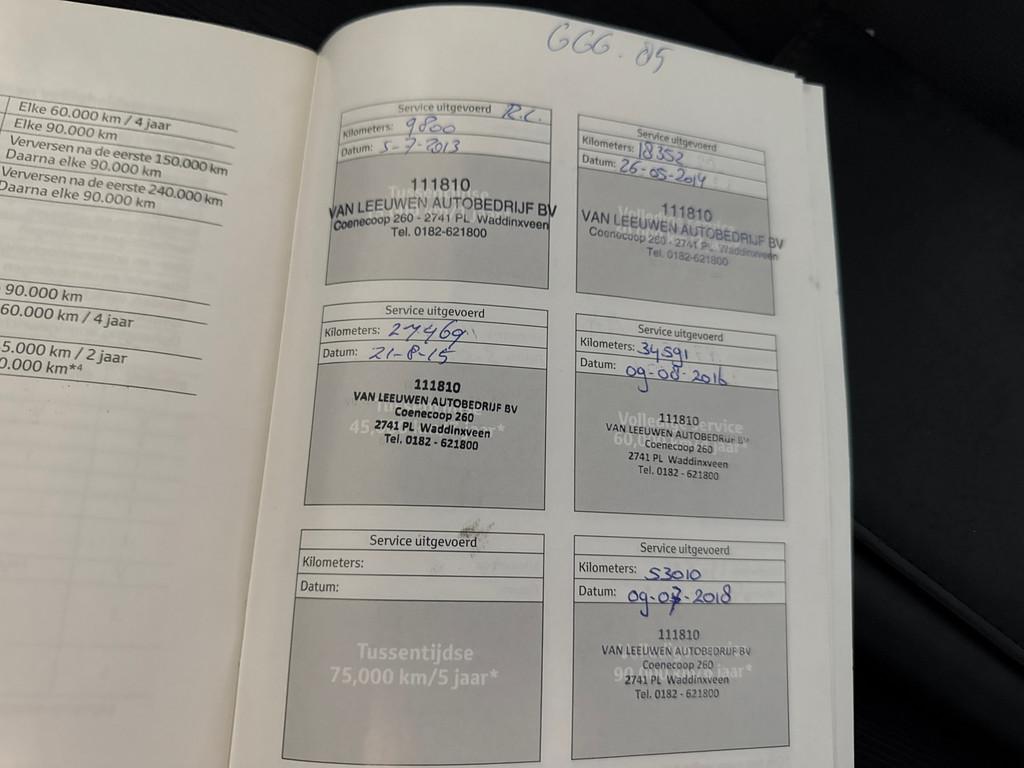 Elke 60.000 km / 4 jaar
Elke 90.000 km
Verversen na de eerste 150.000 km
Daarna elke 90.000 km
Verversen na de eerste 240.000 km
Daarna elke 90.000 km
90.000 km
60.000 km / 4 jaar
5.000 km / 2 jaar
0.000 km*4
GGG. 85
Service uitgevoerd R.L.
Kilometers: 9800
Datum: 5-7-2013
Tussentijdse
111810
VAN LEEUWEN AUTOBEDRIJF BV
Coenecoop 260 - 2741 PL Waddinxveen
Tel. 0182-621800
Service uitgevoerd
Kilometers: 18352
Datum: 26-05-2014
111810
VAN LEEUWEN AUTOBEDRIJF BV
Coenecoop 260 - 2741 PL Waddinxveen
Tel. 0182-621800
Service uitgevoerd
Kilometers: 27469
Datum: 21-8-15
111810
VAN LEEUWEN AUTOBEDRIJF BV
Tussentijdse
Coenecoop 260
45,000 km/3 jaar*
2741 PL Waddinxveen
Tel. 0182 - 621800
Service uitgevoerd
Kilometers: 34591
Datum: 09-08-2016
111810
Volledige service
VAN LEEUWEN AUTOBEDRIJF BV
60,000 km/4 jaar*
Coenecoop 260
2741 PL Waddinxveen
Tel. 0182 - 621800
Service uitgevoerd
Kilometers:
Datum:
Tussentijdse
75,000 km/5 jaar*
Service uitgevoerd
Kilometers: 53010
Datum: 09-07-2018
111810
VAN LEEUWEN AUTOBEDRIJF BV
Coenecoop 260
90,000 km/6 jaar*
2741 PL Waddinxveen
Tel. 0182 - 621800